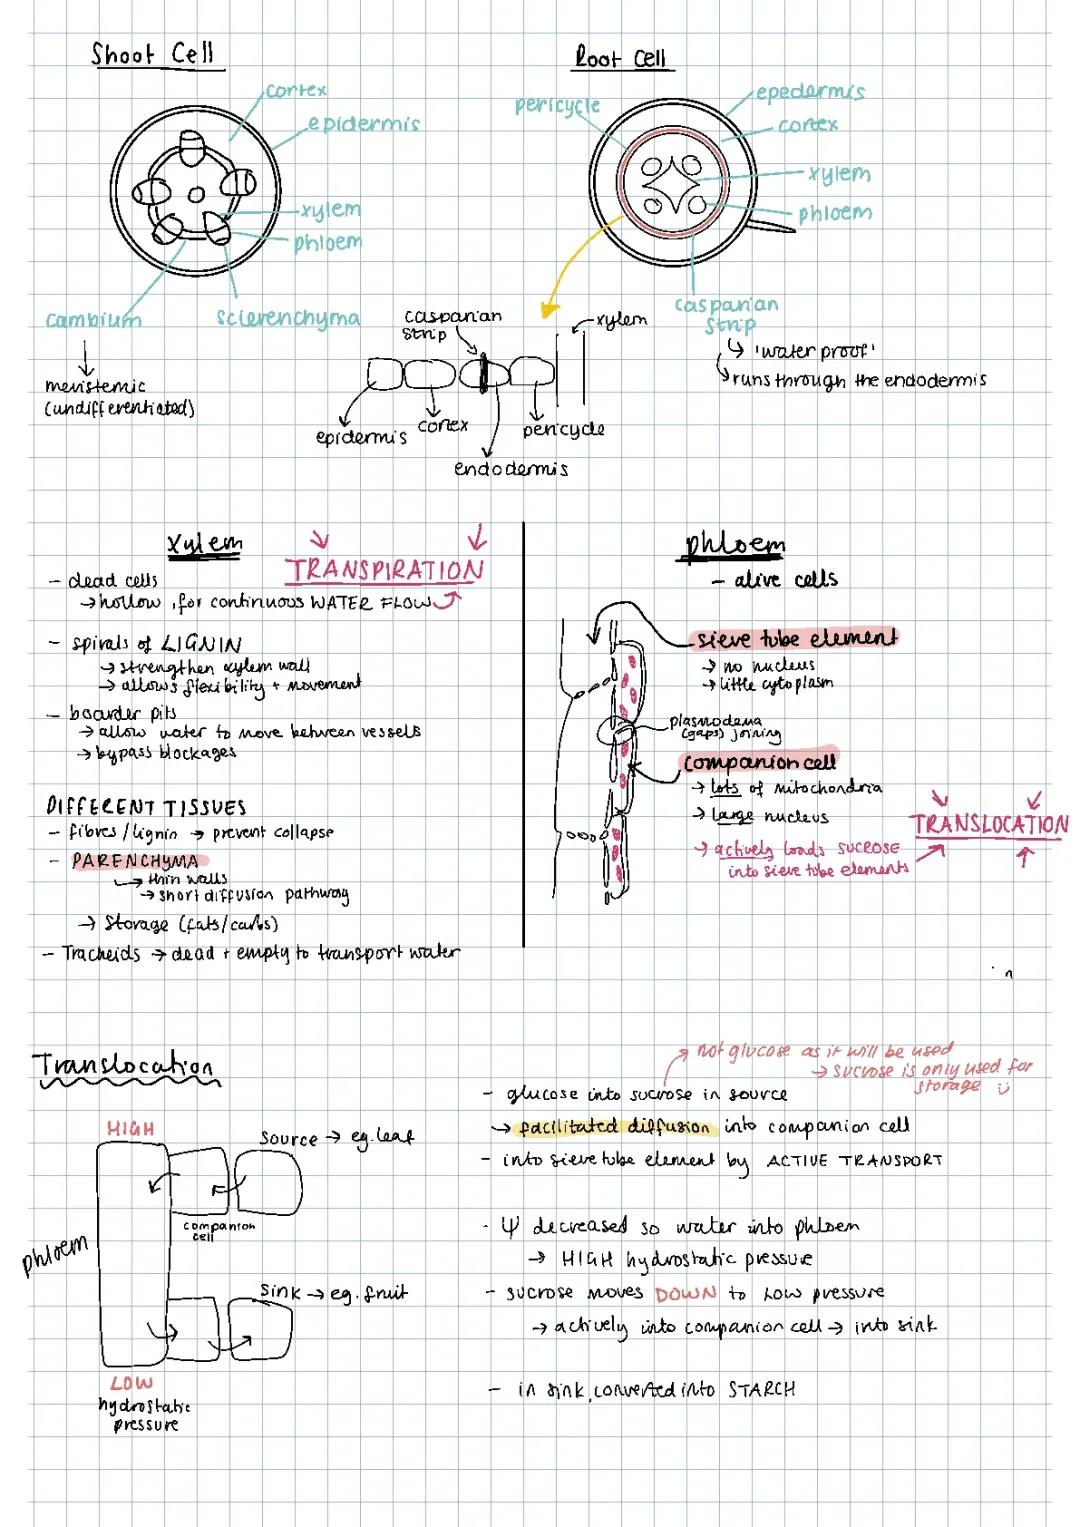 Shoot Cell
cortex
epidermis
xylem
phloem
cambium
sclerenchyma
meristemic
(undifferentiated)
Root Cell
pericycle
epedermis
cortex
xylem
phloem
casparian
strip
↳ 'water proof'
↳ runs through the endodermis
casparian
strip
xylem
epidermis
cortex
pericycle
endodermis
xylem
TRANSPIRATION
- dead cells
→ hollow, for continuous WATER FLOW
- spirals of LIGNIN
→ strengthen xylem wall
→ allows flexibility + movement
- boarder pits
→ allow water to move between vessels
→ bypass blockages
DIFFERENT TISSUES
- fibres / lignin → prevent collapse
- PARENCHYMA
↳ thin walls
→ short diffusion pathway
→ storage (fats/carbs)
- Tracheids → dead + empty to transport water
phloem
- alive cells
sieve tube element
→ no nucleus
→ little cytoplasm
plasmodema
(gaps) joining
companion cell
→ lots of mitochondria
→ large nucleus
→ actively loads SUCROSE
into sieve tube elements
TRANSLOCATION
Translocation
HIGH
source → eg. leaf
companion
cell
phloem
sink → eg. fruit
LOW
hydrostatic
pressure
not glucose as it will be used
→ sucrose is only used for
storage
- glucose into sucrose in source
→ facilitated diffusion into companion cell
- into sieve tube element by ACTIVE TRANSPORT
- Ψ decreased so water into phloem
→ HIGH hydrostatic pressure
- sucrose moves DOWN to LOW pressure
→ actively into companion cell → into sink
- in sink, converted into STARCH